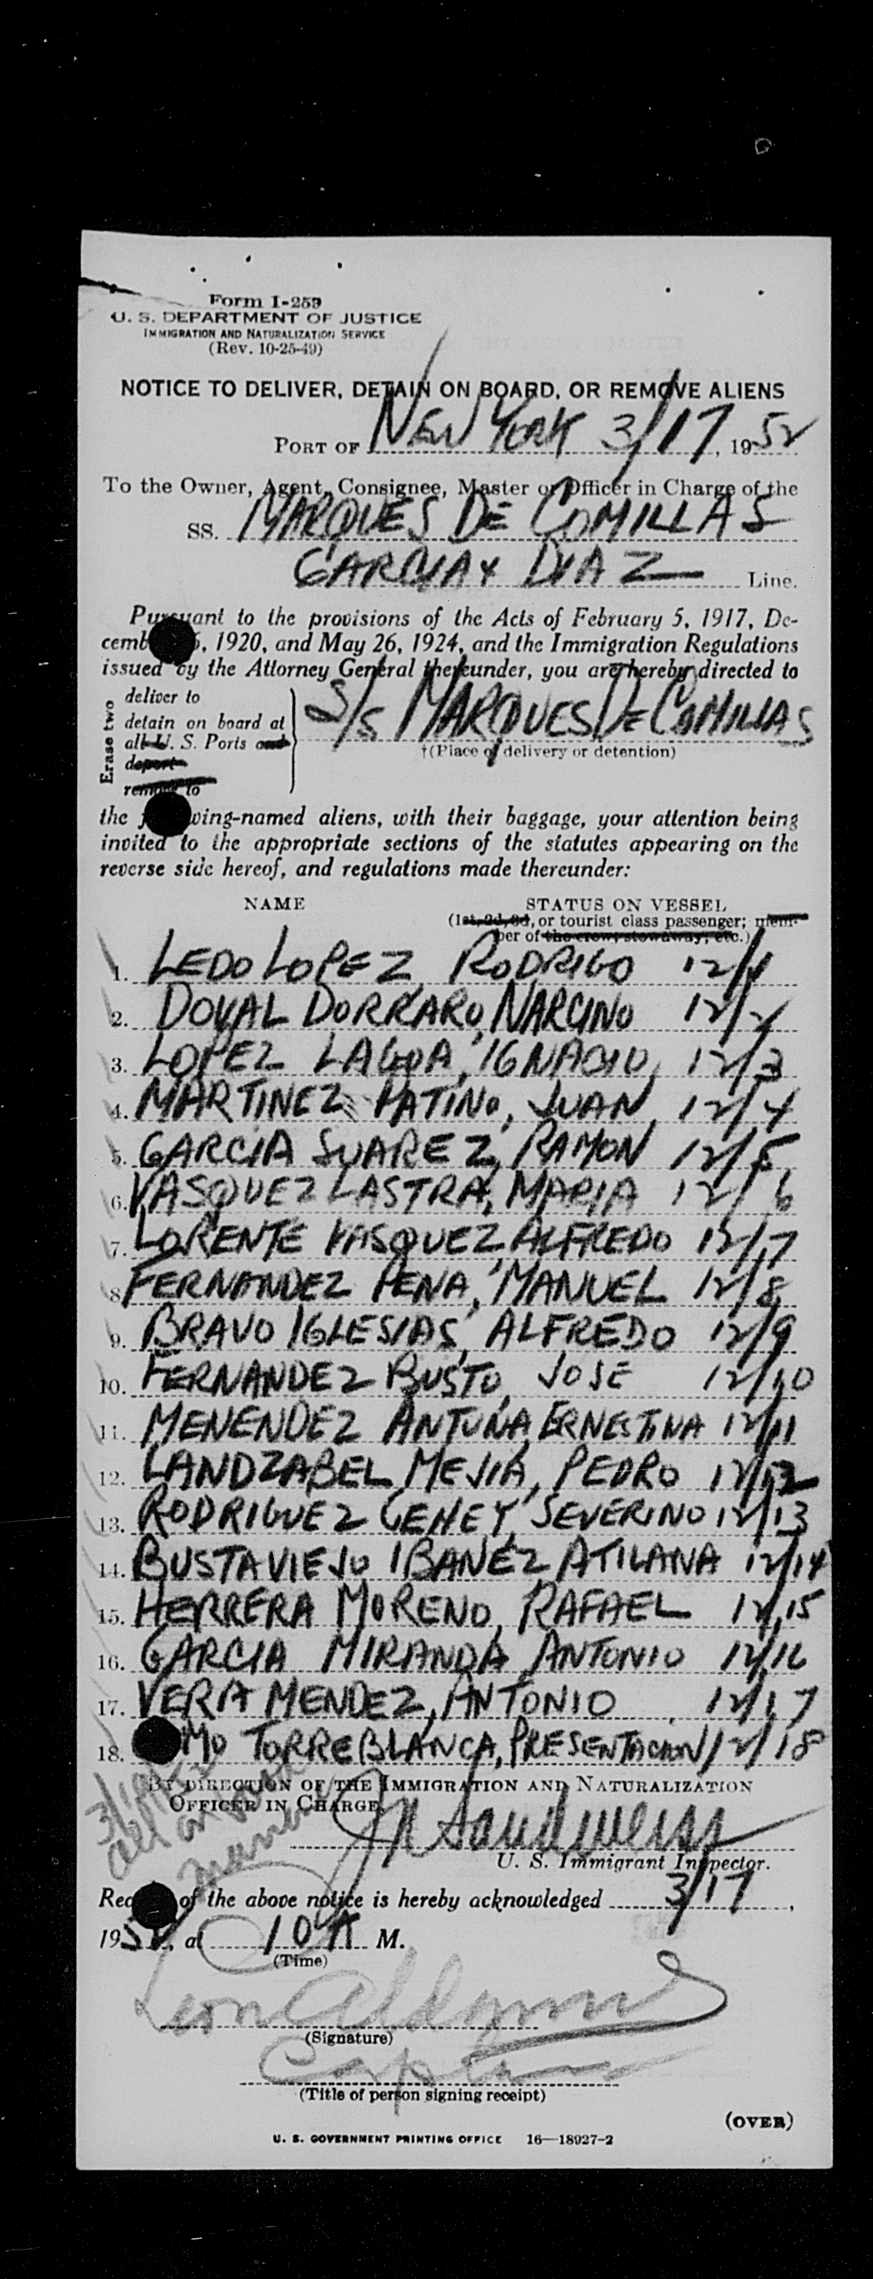 Form I-259
U. S. DEPARTMENT OF JUSTICE
IMMIGRATION AND NATURALIZATION SERVICE
(Rev. 10-25-49)
NOTICE TO DELIVER, DETAIN ON BOARD, OR REMOVE ALIENS
PORT OF NEW YORK 3/17, 1952
To the Owner, Agent, Consignee, Master or Officer in Charge of the
SS. MARQUES DE COMILLAS
GARCIA Y DIAZ Line.
Pursuant to the provisions of the Acts of February 5, 1917, De-
cemb 6, 1920, and May 26, 1924, and the Immigration Regulations
issued by the Attorney General thereunder, you are hereby directed to
Erase two
deliver to
detain on board at
all U. S. Ports and
deport
remove to
S/S MARQUES DE COMILLAS
†(Place of delivery or detention)
the wing-named aliens, with their baggage, your attention being
invited to the appropriate sections of the statutes appearing on the
reverse side hereof, and regulations made thereunder:
NAME STATUS ON VESSEL
(1st, 2d, 3d, or tourist class passenger; mem-
ber of the crew, stowaway, etc.)
1. LEDO LOPEZ RODRIGO 12/1
2. DOVAL DORRARO, NARCINO 12/2
3. LOPEZ LAGOA, IGNACIO, 12/3
4. MARTINEZ PATINO, JUAN 12/4
5. GARCIA SUAREZ, RAMON 12/5
6. VASQUEZ LASTRA, MARIA 12/6
7. LORENTE VASQUEZ ALFREDO 12/7
8. FERNANDEZ PENA, MANUEL 12/8
9. BRAVO IGLESIAS, ALFREDO 12/9
10. FERNANDEZ BUSTO, JOSE 12/10
11. MENENDEZ ANTUNA, ERNESTINA 12/11
12. LANDZABEL MEJIA, PEDRO 12/12
13. RODRIGUEZ GEHEY, SEVERINO 12/13
14. BUSTAVIEJO IBANEZ ATILANA 12/14
15. HERRERA MORENO, RAFAEL 12/15
16. GARCIA MIRANDA ANTONIO 12/16
17. VERA MENDEZ, ANTONIO 12/17
18. MO TORREBLANCA, PRESENTACION 12/18
BY DIRECTION OF THE IMMIGRATION AND NATURALIZATION
OFFICER IN CHARGE
U. S. Immigrant Inspector.
Rec of the above notice is hereby acknowledged 3/17,
1952, at 10 A M.
(Time)
(Signature)
Captain
(Title of person signing receipt)
(OVER)
U. S. GOVERNMENT PRINTING OFFICE 16—18927-2